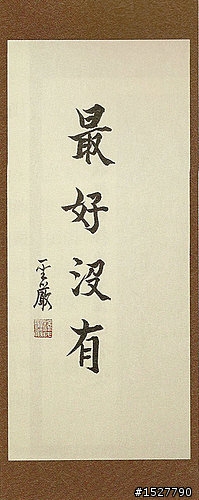 最好沒有
聖嚴
#1527790